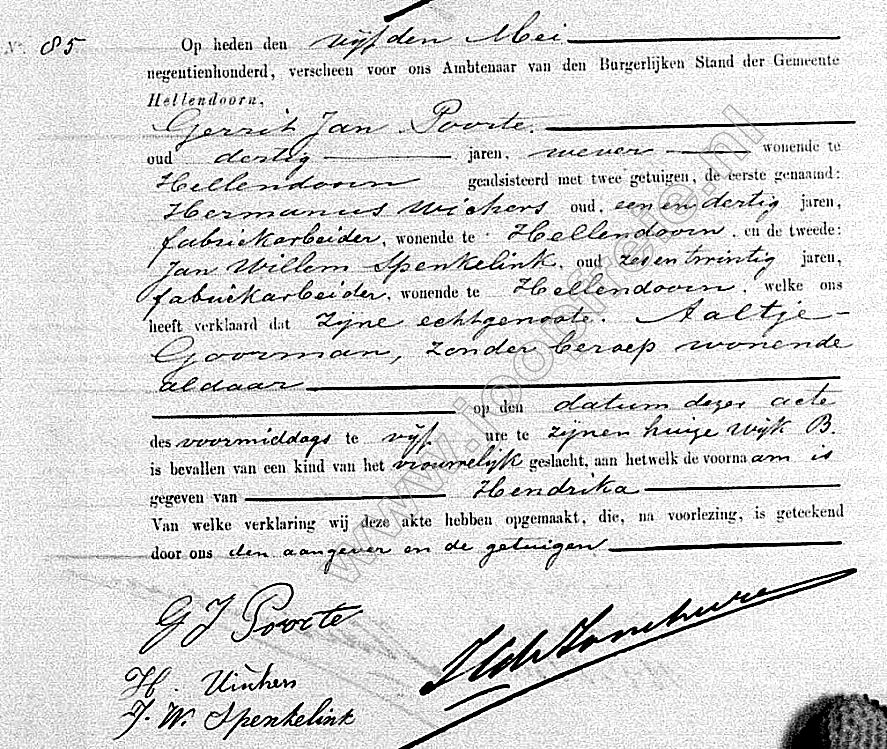 No. 85 Op heden den vijfden Mei
negentienhonderd, verscheen voor ons Ambtenaar van den Burgerlijken Stand der Gemeente
Hellendoorn,
Gerrit Jan Poorte.
oud dertig jaren, wever wonende te
Hellendoorn geadsisteerd met twee getuigen, de eerste genaamd:
Hermanus Wichers oud, een en dertig jaren,
fabriekarbeider, wonende te Hellendoorn, en de tweede:
Jan Willem Spenkelink, oud zesentwintig jaren,
fabriekarbeider, wonende te Hellendoorn, welke ons
heeft verklaard dat zijne echtgenoote. Aaltje
Goorman, zonder beroep wonende
aldaar
op den datum dezer acte
des voormiddags te vijf ure te zijnen huize wijk B.
is bevallen van een kind van het vrouwelijk geslacht, aan hetwelk de voornaam is
gegeven van Hendrika
Van welke verklaring wij deze akte hebben opgemaakt, die, na voorlezing, is geteekend
door ons den aangever en de getuigen
G J Poorte
H.
J. W. Spenkelink